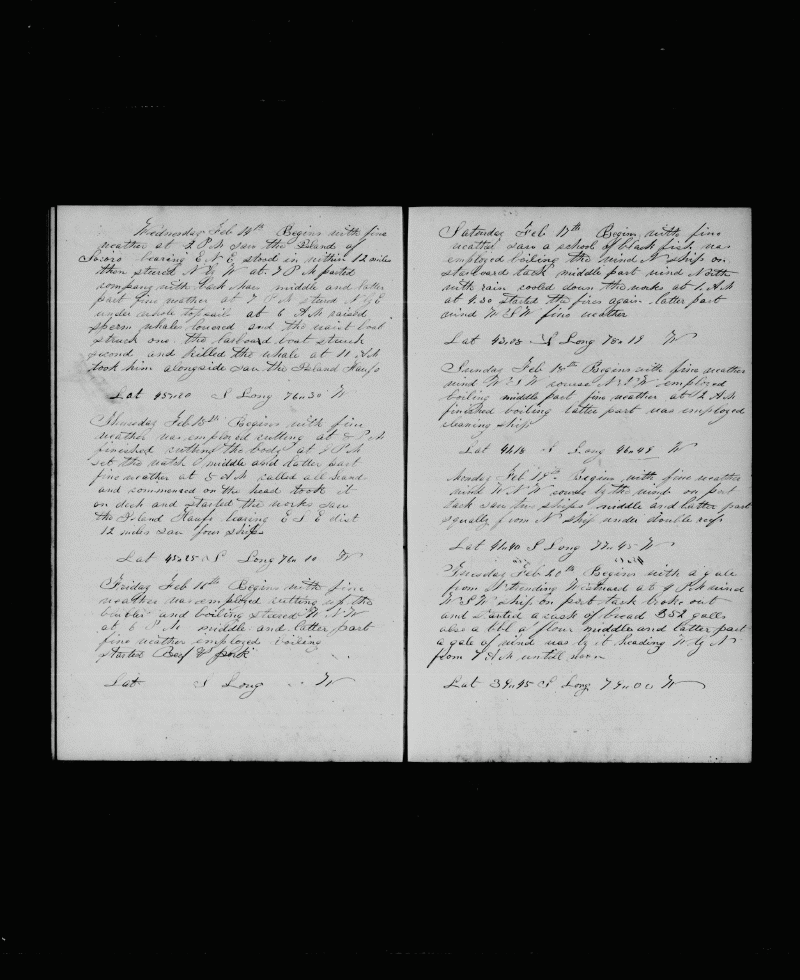 Wednesday Feb 14th Begins with fine
weather at 2 P M saw the Island of
Socoro bearing E N E stood in within 12 miles
then steered N by W at 7 P M parted
company with bark middle and latter
part fine weather at 7 P M steered N by E
under whole topsails at 6 A M raised
sperm whales lowered and the waist boat
struck one the larboard boat struck
second and killed the whale at 11 A M
took him alongside saw the Island Huafo
Lat 45..00 S Long 76..30 W
Thursday Feb 15th Begins with fine
weather was employed cutting at P M
finished cutting the body at P M
set the watch middle and latter part
fine weather at 5 A M called all hands
and commenced on the head took it
on deck and started the works saw
the Island Huafo bearing E S E dist
12 miles saw four ships
Lat 43..25 S Long 76..10 W
Friday Feb 16th Begins with fine
weather was employed cutting up the
blubber and boiling steered W N W
at 6 P M middle and latter part
fine weather employed boiling
started Beef & pork
Lat S Long W
Saturday Feb 17th Begins with fine
weather saw a school of black fish was
employed boiling the wind N ship on
starboard tack middle part wind North
with rain cooled down the works at 1 A M
at 4.30 started the fires again latter part
wind W S W fine weather
Lat 43..08 S Long 78..18 W
Sunday Feb 18th Begins with fine weather
wind W S W course N W employed
boiling middle part fine weather at 2 A M
finished boiling latter part was employed
cleaning ship
Lat 41..18 S Long 76..48 W
Monday Feb 19th Begins with fine weather
wind W N W course by the wind on port
tack saw two ships middle and latter part
squally from N ship under double reefs
Lat 41..40 S Long 77..45 W
Tuesday Feb 20th Begins with a gale
from N trending Westward at 9 P M wind
W S W ship on port tack broke out
and started a cask of bread 352 galls
also a bbl of flour middle and latter part
a gale of wind was by it heading W by N
from 7 A M untill noon
Lat 39..45 S Long 79..00 W